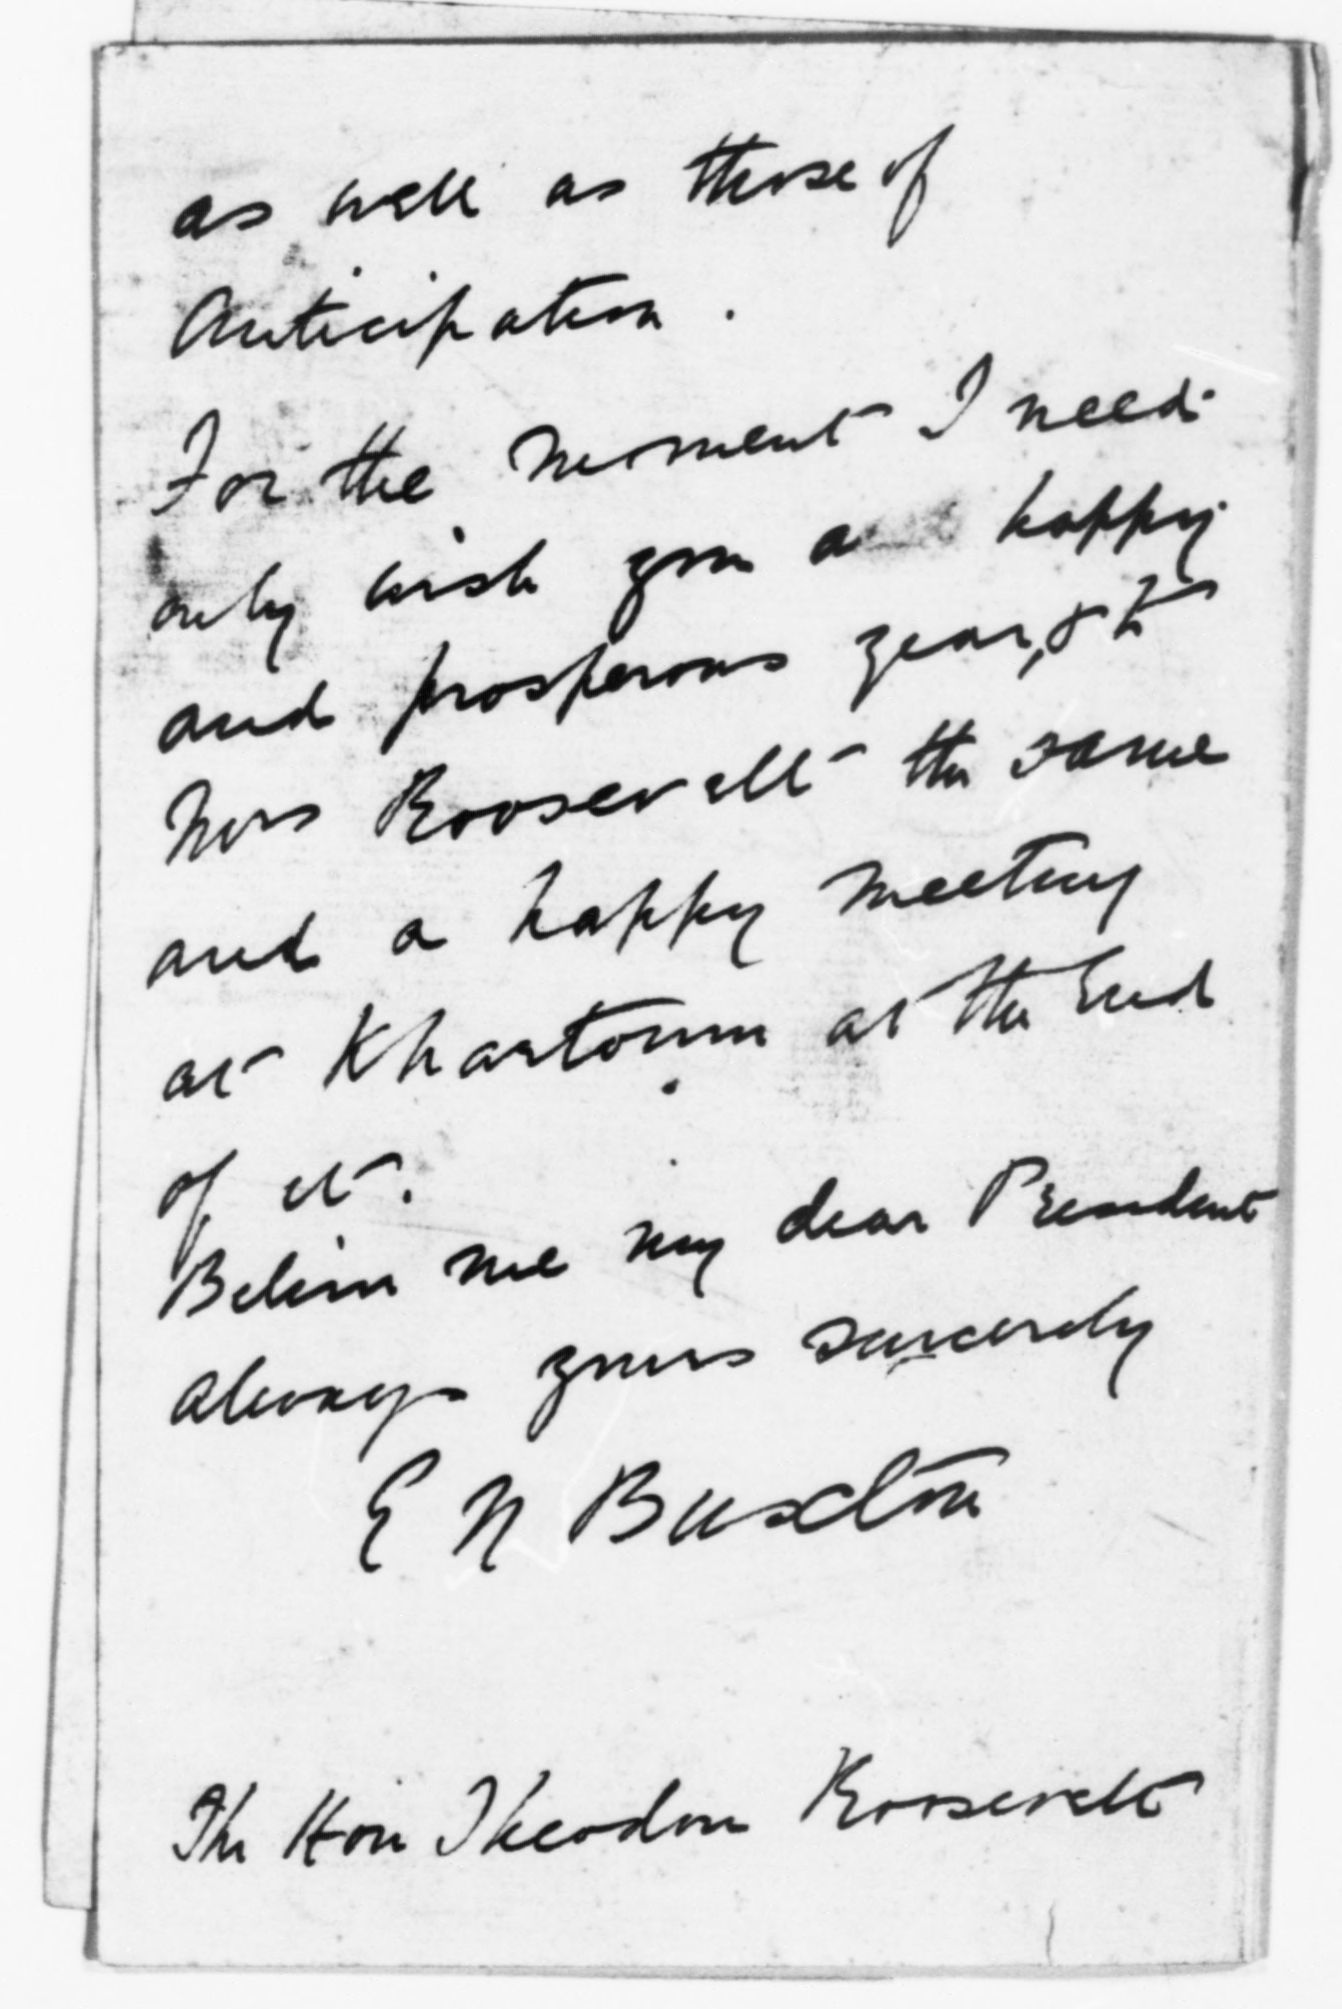 as well as those of
Anticipation.
For the moment I need
only wish you a happy
and prosperous year, & to
Mrs Roosevelt the same
and a happy meeting
at Khartoum at the End
of it.
Believe me my dear President
always yours sincerely
E N Buxton
The Hon Theodore Roosevelt